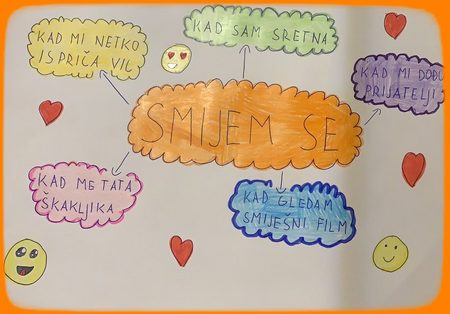 KAD MI NETKO
ISPRIČA VIC
KAD SAM SRETNA
KAD MI DOĐU
PRIJATELJI
SMIJEM SE
KAD ME TATA
ŠKAKLJIKA
KAD GLEDAM
SMIJEŠNI FILM